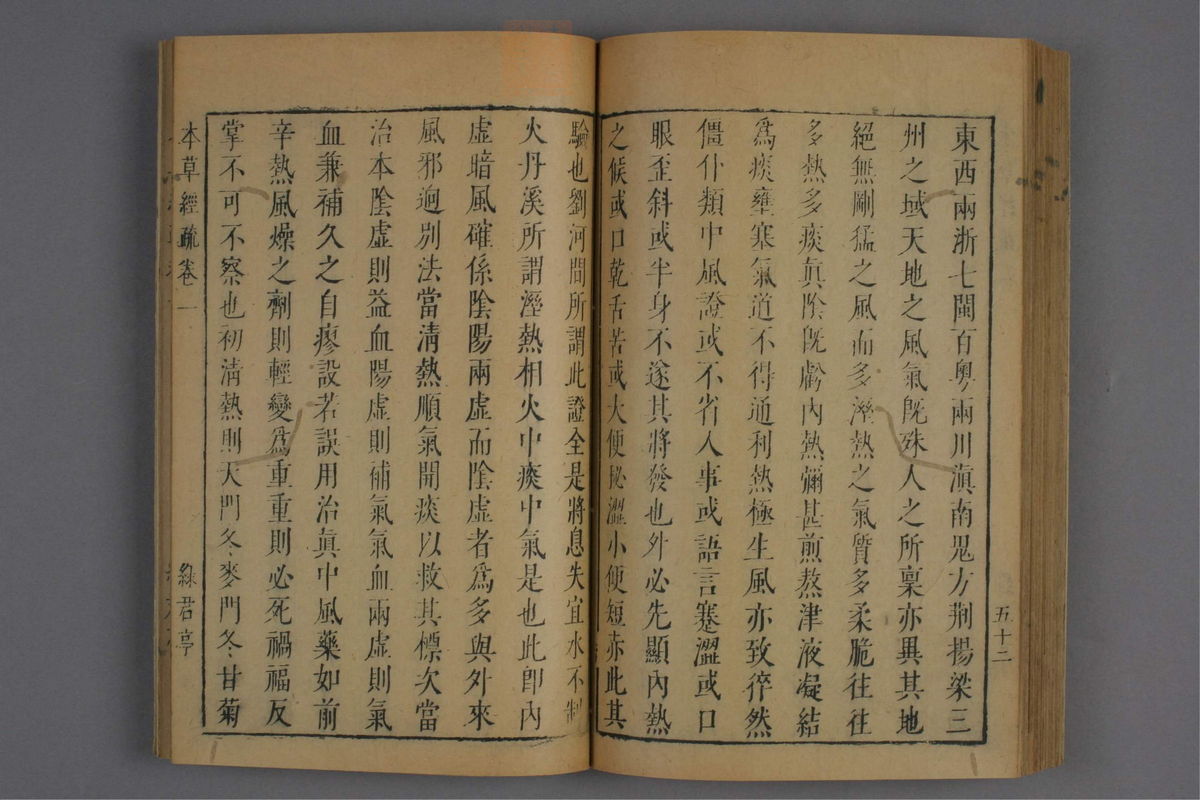 東西兩浙七閩百粵兩川滇南鬼方荆揚梁三
州之域天地之風氣既殊人之所稟亦異其地
絕無剛猛之風而多溼熱之氣質多柔脆往往
多熱多痰真陰既虧內熱彌甚煎熬津液凝結
爲痰壅塞氣道不得通利熱極生風亦致猝然
僵仆類中風證或不省人事或語言蹇澀或口
眼歪斜或半身不遂其將發也外必先顯內熱
之候或口乾舌苦或大便秘澀小便短赤此其
五十二
驗也劉河間所謂此證全是將息失宜水不制
火丹溪所謂溼熱相火中痰中氣是也此卽內
虛暗風確係陰陽兩虛而陰虛者爲多與外來
風邪迥別法當清熱順氣開痰以救其標次當
治本陰虛則益血陽虛則補氣氣血兩虛則氣
血兼補久之自瘳設若誤用治真中風藥如前
辛熱風燥之劑則輕變爲重重則必死禍福反
掌不可不察也初清熱則天門冬麥門冬甘菊
本草經疏卷一
綠君亭